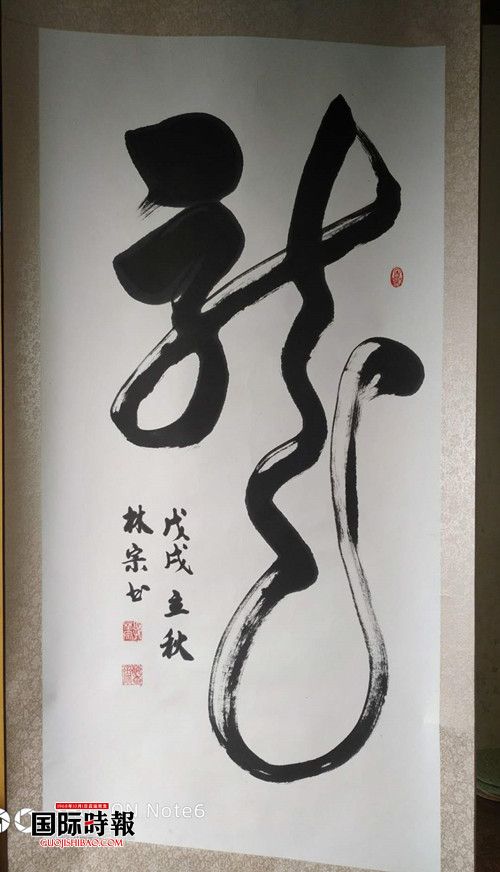 龙
戊戌立秋
林宗书
ON Note6
国际時報
GUOJISHIBAO.COM